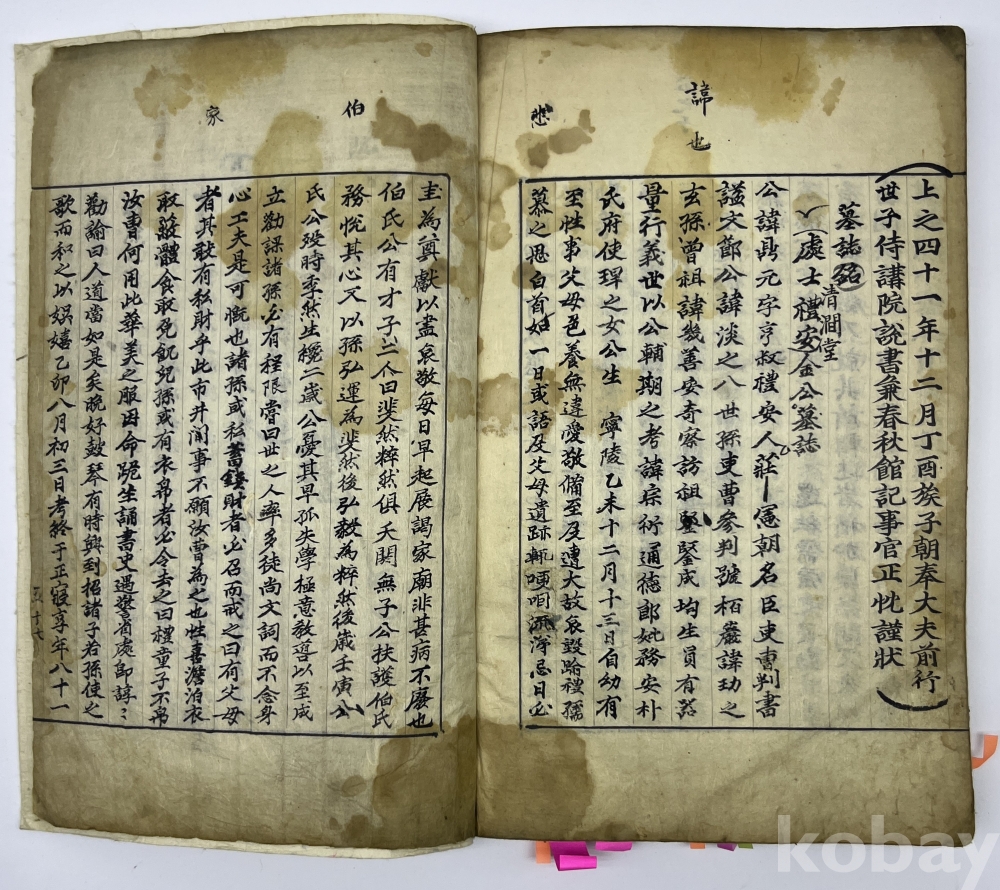 諱也
悲
上之四十一年十二月丁酉族子朝奉大夫前行
世子侍講院說書兼春秋館記事官正忱謹狀
墓誌銘
清澗堂
處士禮安金公墓誌
公諱鼎元字亨叔禮安人莊憲朝名臣吏曹判書
謚文節公諱淡之八世孫吏曹參判號栢巖諱玏之
玄孫曾祖諱幾善安奇察訪祖鋻成均生員有器
量行義世以公輔期之考諱宗衍通德郎妣務安朴
氏府使琿之女公生 寧陵乙未十二月十三日自幼有
至性事父母色養無違愛敬備至及遭大故哀毀踰禮孺
慕之思白首如一日或語及父母遺跡輒哽咽流涕忌日必
伯
家
圭為奠獻以盡哀敬每日早起展謁家廟非甚病不廢也
伯氏公有才子二人曰斐然粹然俱夭閼無子公扶護伯氏
務悅其心又以孫弘運為斐然後弘毅為粹然後歲壬寅公
氏公歿時季然生纔二歲公憂其早孤失學極意教導以至成
立勸課諸孫必有程限嘗曰世之人率多徒尚文詞而不念身
心工夫是可慨也諸孫或私蓄錢財者必召而戒之曰有父母
者其敢有私財乎此市井間事不願汝曹為之也性喜澹泊衣
取蔽體食取免飢兒孫或有衣帛者必令去之曰禮童子不帛
汝曹何用此華美之服因命跪坐誦書史遇警省處卽諄〻
勸諭曰人道當如是矣晩好鼓琴有時興到招諸子若孫使之
歌而和之以娛嬉乙卯八月初三日考終于正寢享年八十一
kobay